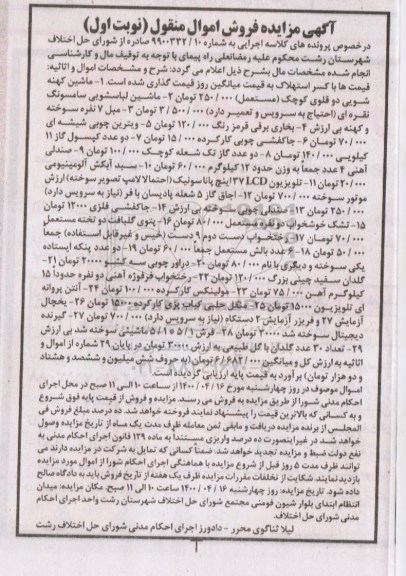 آگهی مزایده فروش اموال منقول (نوبت اول)
درخصوص پرونده های کلاسه اجرایی به شماره ۹۹۰۰۳۳۲/۱۰ صادره از شورای حل اختلاف
شهرستان رشت محکوم علیه رمضانعلی راه پیمای با توجه به توقیف مال و کارشناسی
انجام شده مشخصات مال بشرح ذیل اعلام می گردد: شرح و مشخصات اموال و اثاثیه:
قیمت ها با کسر استهلاک به قیمت میانگین روز قیمت گذاری شده است. ۱- ماشین کهنه
شویی دو قلوی کوچک (مستعمل) ۲۵۰/۰۰۰ تومان ۲- ماشین لباسشویی سامسونگ
نقره ای (احتیاج به سرویس و تعمیر دارد) ۳/۵۰۰/۰۰۰ تومان ۳- مبل ۷ نفره سوخته
و کهنه بی ارزش ۴- بخاری برقی قرمز رنگ ۱۲۰/۰۰۰ تومان ۵- ویترین چوبی شیشه ای
۷۰/۰۰۰ تومان ۶- جاکفشی چوبی کارکرده ۱۵/۰۰۰ تومان ۷- دو عدد کپسول گاز ۱۱
کیلویی ۱۴۰/۰۰۰ تومان ۸- دو عدد گاز تک شعله کوچک ۱۰۰/۰۰۰ تومان ۹- صندلی
آهنی ۴ عدد جمعا به وزن حدود ۱۲ کیلوگرم ۶۰/۰۰۰ تومان ۱۰- سبد آبکش آلومینیومی
۲۰/۰۰۰ تومان ۱۱- تلویزیون LCD ۳۷ اینچ پاناسونیک (احتمالا لامپ تصویر سوخته) ارزش
موتور سوخته ۷۰/۰۰۰ تومان ۱۲- اجاق گاز ۵ شعله پادیسان با فر (نیاز به سرویس دارد)
۲۵۰/۰۰۰ تومان ۱۳- مبلمان چوبی سوخته بی ارزش ۱۴- جاکفشی فلزی ۱۲۰۰۰ تومان
۱۵- تشک خوشخواب دو نفره مستعمل ۸۰/۰۰۰ تومان ۱۶- پتوی گلبافت دو تخته مستعمل
۷۰/۰۰۰ تومان ۱۷- رختخواب دست دوم ۹ دست (خیس و غیرقابل استفاده) جمعا
۵۰/۰۰۰ تومان ۱۸- ۶ عدد بالش مستعمل جمعا ۶۰/۰۰۰ تومان ۱۹- دو عدد پنکه ایستاده
یکی سوخته و دیگری با نام ۸۰/۰۰۰ تومان ۲۰- دراور چوبی سه کشو ۲۰۰۰۰ تومان ۲۱-
گلدان سفید چینی بزرگ ۱۲۰/۰۰۰ تومان ۲۲- رختخواب فرفوژه آهنی دو نفره حدودا ۱۵
کیلوگرم آهن ۷۵/۰۰۰ تومان ۲۳- مولینکس کارکرده ۱۰۰/۰۰۰ تومان ۲۴- آنتن پروانه
ای تلویزیون ۱۵۰۰۰ تومان ۲۵- منقل حلبی کباب پزی کارکرده ۱۵۰۰۰ تومان ۲۶- یخچال
آزمایش ۲۷ و فریزر آزمایش ۲ دستگاه (نیاز به سرویس دارد) ۷۰۰/۰۰۰ تومان ۲۷- گیرنده
دیجیتال سوخته شد ۳۰۰۰۰ تومان ۲۸- فرش ۱/۵ ۱/۵ ماشینی سوخته شد بی ارزش
۲۹- تعداد ۳۰ عدد گلدان با گل طبیعی به ارزش ۳۰۰۰۰۰ تومان در پایان ۲۹ شماره از اموال و
اثاثیه به ارزش کل و میانگین ۶/۶۸۲/۰۰۰ تومان (به حروف شش میلیون و ششصد و هشتاد
و دو هزار تومان) برآورد به قیمت پایه ارزیابی گردیده است.
اموال موصوف در روز چهارشنبه مورخ ۱۴۰۰/۰۴/۱۶ از ساعت ۱۰ الی ۱۱ صبح در محل اجرای
احکام مدنی شورا از طریق مزایده به فروش می رسد. مزایده و فروش از قیمت پایه فوق شروع
و به کسانی که بالاترین قیمت را پیشنهاد نمایند فروخته خواهد شد. ده درصد مبلغ فروش فی
المجلس از برنده مزایده دریافت و مابقی ثمن معامله ظرف مدت یک ماه از تاریخ مزایده وصول
خواهد شد در غیر اینصورت ده درصد واریزی مستندا به ماده ۱۲۹ قانون اجرای احکام مدنی به
نفع دولت ضبط و مزایده تجدید خواهد شد. ضمنا کسانی که تمایل به شرکت در مزایده دارند می
توانند ظرف مدت ۵ روز قبل از شروع مزایده با هماهنگی اجرای احکام شورا از اموال مورد مزایده
بازدید نمایند شکایت از تخلفات مقررات مزایده ظرف یک هفته از تاریخ فروش باید به دادگاه صالح
داده شود. تاریخ مزایده: روز چهارشنبه ۱۴۰۰/۰۴/۱۶ ساعت ۱۰ الی ۱۱ صبح. مکان مزایده: میدان
انتظام ابتدای بلوار شیون فومنی مجتمع شورای حل اختلاف شهرستان رشت واحد اجرای احکام
مدنی شورای حل اختلاف.
لیلا ثناگوی محرر - دادورز اجرای احکام مدنی شورای حل اختلاف رشت